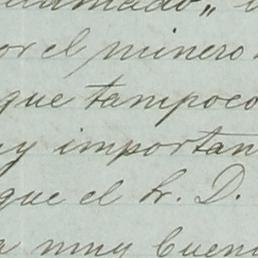 por el minero
que tampoco
muy importan
que el Sr. D.
a muy buen